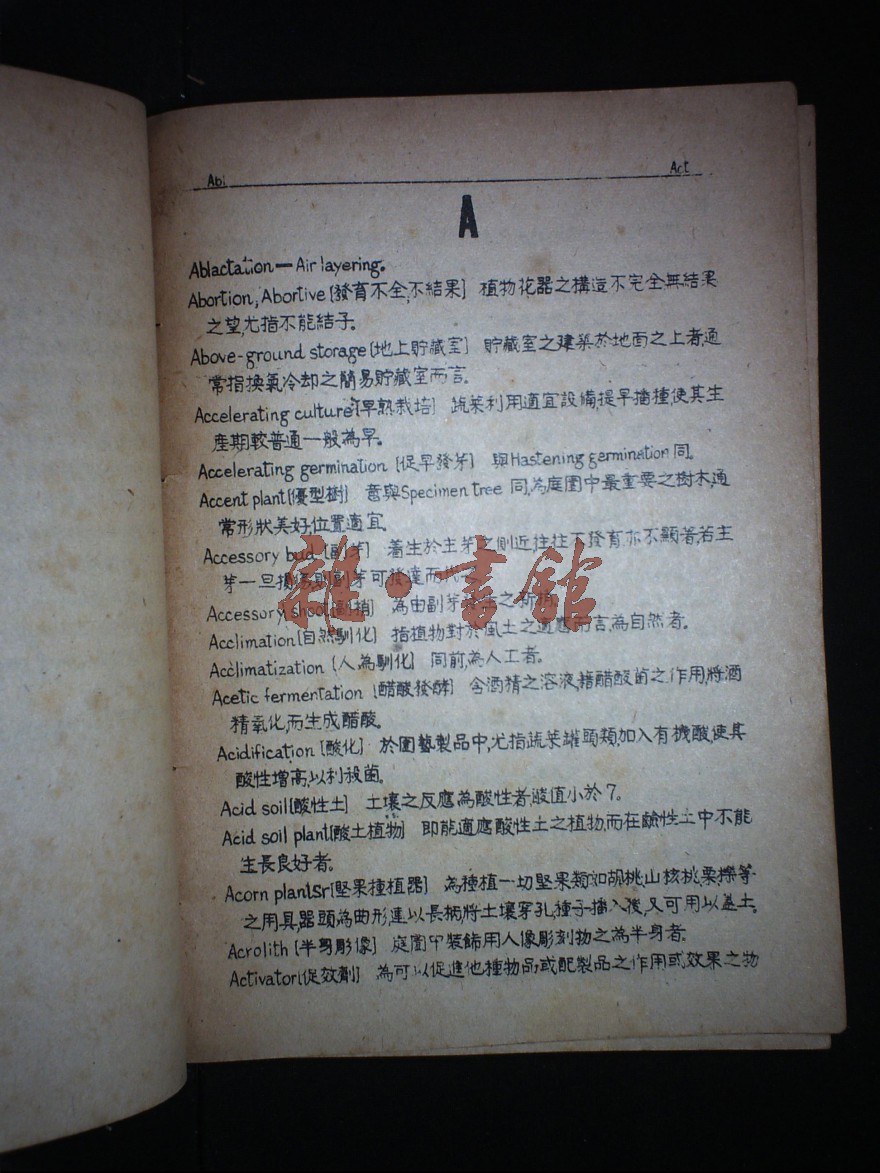 Abl Act
A
Ablactation—Air layering.
Abortion, Abortive [發育不全,不結果] 植物花器之構造不完全無結果
之望,尤指不能結子。
Above-ground storage [地上貯藏室] 貯藏室之建築於地面之上者,通
常指換氣冷却之簡易貯藏室而言。
Accelerating culture [早熟栽培] 蔬菜利用適宜設備,提早播種使其生
產期較普通一般為早。
Accelerating germination [促早發芽] 與Hastening germination 同。
Accent plant [優型樹] 意與Specimen tree 同,為庭園中最重要之樹木,通
常形狀美好,位置適宜。
Accessory bud [副芽] 着生於主芽之側近往往不發育亦不顯著,若主
芽一旦損傷則副芽可發達而代
Accessory shoot [副梢] 為由副芽 之新梢
Acclimation [自然馴化] 指植物對於風土之適應而言,為自然者。
Acclimatization [人為馴化] 同前,為人工者。
Acetic fermentation [醋酸發酵] 含酒精之溶液,藉醋酸菌之作用,將酒
精氧化,而生成醋酸。
Acidification [酸化] 於園藝製品中,尤指蔬菜罐頭類,加入有機酸,使其
酸性增高,以利殺菌。
Acid soil [酸性土] 土壤之反應為酸性者,酸值小於7。
Acid soil plant [酸土植物] 即能適應酸性土之植物,而在鹼性土中不能
生長良好者。
Acorn plantsr [堅果種植器] 為種植一切堅果類,如胡桃,山核桃,栗,櫟等
之用具,器頭為曲形,連以長柄將土壤穿孔,種子播入後,又可用以蓋土。
Acrolith [半身彫像] 庭園中裝飾用人像彫刻物之為半身者。
Activator [促效劑] 為可以促進他種物品或配製品之作用或效果之物
雜·書館